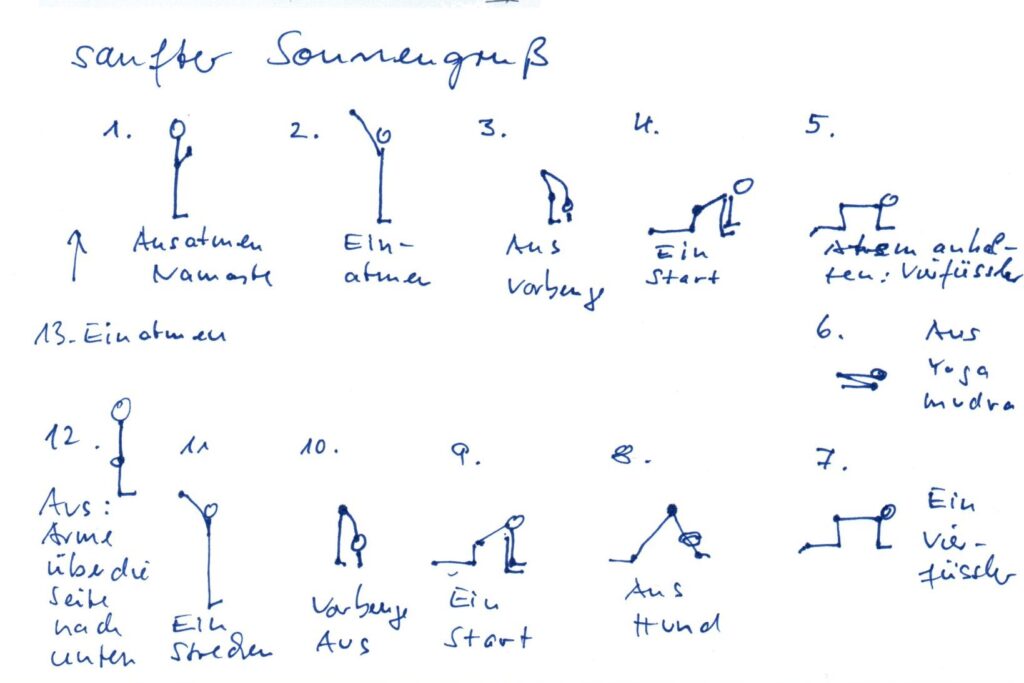 sanfter Sonnengruß
1.
2.
3.
4.
5.
Ausatmen
Namaste
Ein-
atmen
Aus
Vorbeuge
Ein
Start
Atem anhal-
ten: Vierfüssler
13. Einatmen
6.
Aus
Yoga
mudra
12.
11
10.
9.
8.
7.
Aus:
Arme
über die
Seite
nach
unten
Ein
Strecken
Vorbeuge
Aus
Ein
Start
Aus
Hund
Ein
Vier-
füssler